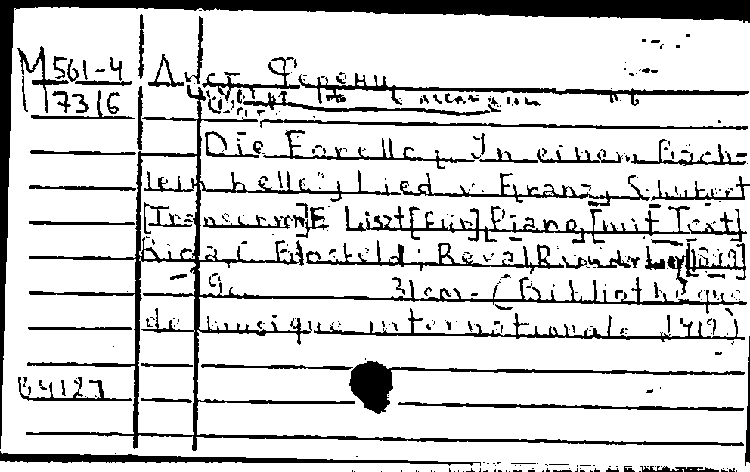 M 561-4 Лист Ференц
17316
Die Forelle; In einem Bäch-
lein helle; Lied v. Franz Schubert
[Transcr. von] F. Liszt [für] Piano, [mit Text]
Riga, Reval,
9 c. 31 cm - (Bibliothèque
de musique internationale 1419)
64127